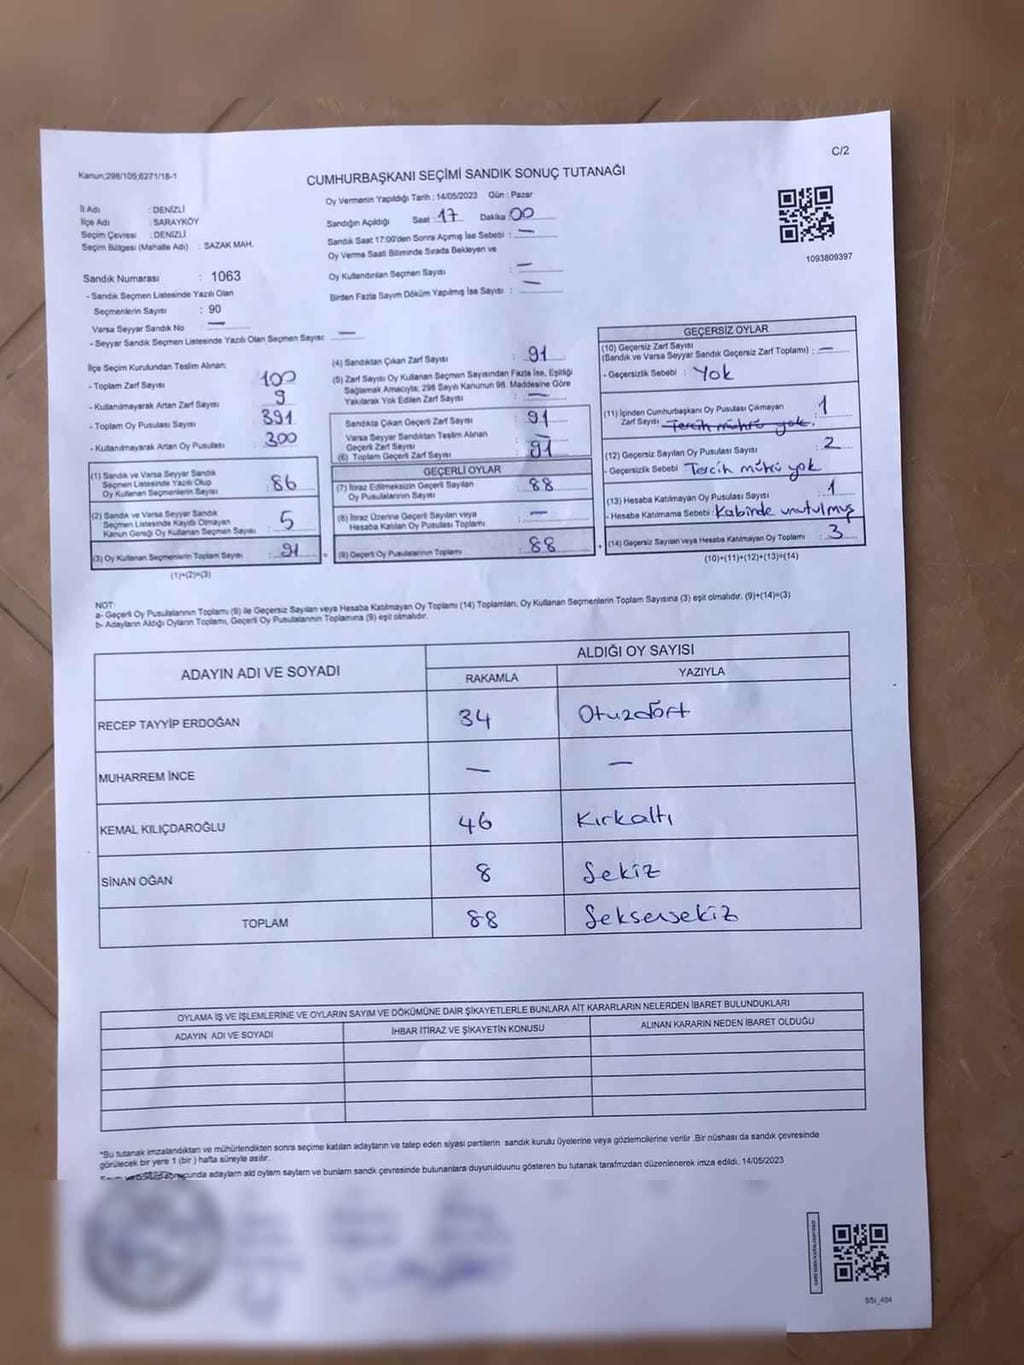 C/2
Kanun;298/105;6271/18-1
CUMHURBAŞKANI SEÇİMİ SANDIK SONUÇ TUTANAĞI
Oy Vermenin Yapıldığı Tarih : 14/05/2023 Gün : Pazar
İl Adı : DENİZLİ
İlçe Adı : SARAYKÖY
Seçim Çevresi : DENİZLİ
Seçim Bölgesi (Mahalle Adı) : SAZAK MAH.
Sandığın Açıldığı Saat 17 Dakika 00
Sandık Saat 17:00'den Sonra Açımış İse Sebebi : —
Oy Verme Saati Bitiminde Sırada Bekleyen ve
Oy Kullandırılan Seçmen Sayısı : —
Birden Fazla Sayım Döküm Yapılmış İse Sayısı : —
1093809397
Sandık Numarası : 1063
- Sandık Seçmen Listesinde Yazılı Olan
Seçmenlerin Sayısı : 90
Varsa Seyyar Sandık No —
- Seyyar Sandık Seçmen Listesinde Yazılı Olan Seçmen Sayısı: —
İlçe Seçim Kurulundan Teslim Alınan;
- Toplam Zarf Sayısı 100
- Kullanılmayarak Artan Zarf Sayısı 9
- Toplam Oy Pusulası Sayısı 391
- Kullanılmayarak Artan Oy Pusulası 300
(1) Sandık ve Varsa Seyyar Sandık
Seçmen Listesinde Yazılı Olup
Oy Kullanan Seçmenlerin Sayısı : 86
(2) Sandık ve Varsa Seyyar Sandık
Seçmen Listesinde Kayıtlı Olmayan
Kanun Gereği Oy Kullanan Seçmen Sayısı : 5
(3) Oy Kullanan Seçmenlerin Toplam Sayısı : 91
(1)+(2)=(3)
(4) Sandıktan Çıkan Zarf Sayısı : 91
(5) Zarf Sayısı Oy Kullanan Seçmen Sayısından Fazla İse, Eşitliği
Sağlamak Amacıyla; 298 Sayılı Kanunun 98. Maddesine Göre
Yakılarak Yok Edilen Zarf Sayısı : —
Sandıkta Çıkan Geçerli Zarf Sayısı : 91
Varsa Seyyar Sandıktan Teslim Alınan
Geçerli Zarf Sayısı —
(6) Toplam Geçerli Zarf Sayısı 91
GEÇERLİ OYLAR
(7) İtiraz Edilmeksizin Geçerli Sayılan
Oy Pusulalarının Sayısı : 88
(8) İtiraz Üzerine Geçerli Sayılan veya
Hesaba Katılan Oy Pusulası Toplamı : —
(9) Geçerli Oy Pusulalarının Toplamı : 88
GEÇERSİZ OYLAR
(10) Geçersiz Zarf Sayısı
(Sandık ve Varsa Seyyar Sandık Geçersiz Zarf Toplamı) : —
- Geçersizlik Sebebi : Yok
(11) İçinden Cumhurbaşkanı Oy Pusulası Çıkmayan
Zarf Sayısı : Tercih mührü yok. 1
(12) Geçersiz Sayılan Oy Pusulası Sayısı : 2
- Geçersizlik Sebebi Tercih mührü yok
(13) Hesaba Katılmayan Oy Pusulası Sayısı : 1
- Hesaba Katılmama Sebebi : Kabinde unutulmuş
(14) Geçersiz Sayılan veya Hesaba Katılmayan Oy Toplamı : 3
(10)+(11)+(12)+(13)=(14)
NOT:
a- Geçerli Oy Pusulalarının Toplamı (9) ile Geçersiz Sayılan veya Hesaba Katılmayan Oy Toplamı (14) Toplamları, Oy Kullanan Seçmenlerin Toplam Sayısına (3) eşit olmalıdır. (9)+(14)=(3)
b- Adayların Aldığı Oyların Toplamı, Geçerli Oy Pusulalarının Toplamına (9) eşit olmalıdır.
ADAYIN ADI VE SOYADI
ALDIĞI OY SAYISI
RAKAMLA YAZIYLA
RECEP TAYYİP ERDOĞAN 34 Otuzdört
MUHARREM İNCE — —
KEMAL KILIÇDAROĞLU 46 Kırkaltı
SİNAN OĞAN 8 Sekiz
TOPLAM 88 Seksensekiz
OYLAMA İŞ VE İŞLEMLERİNE VE OYLARIN SAYIM VE DÖKÜMÜNE DAİR ŞİKAYETLERLE BUNLARA AİT KARARLARIN NELERDEN İBARET BULUNDUKLARI
ADAYIN ADI VE SOYADI İHBAR İTİRAZ VE ŞİKAYETİN KONUSU ALINAN KARARIN NEDEN İBARET OLDUĞU
*Bu tutanak imzalandıktan ve mühürlendikten sonra seçime katılan adayların ve talep eden siyasi partilerin sandık kurulu üyelerine veya gözlemcilerine verilir .Bir nüshası da sandık çevresinde
görülecek bir yere 1 (bir ) hafta süreyle asılır.
adaylarn ald oylarn saylarn ve bunlarn sandk çevresinde bulunanlara duyurulduunu gösteren bu tutanak tarafmzdan düzenlenerek imza edildi. 14/05/2023